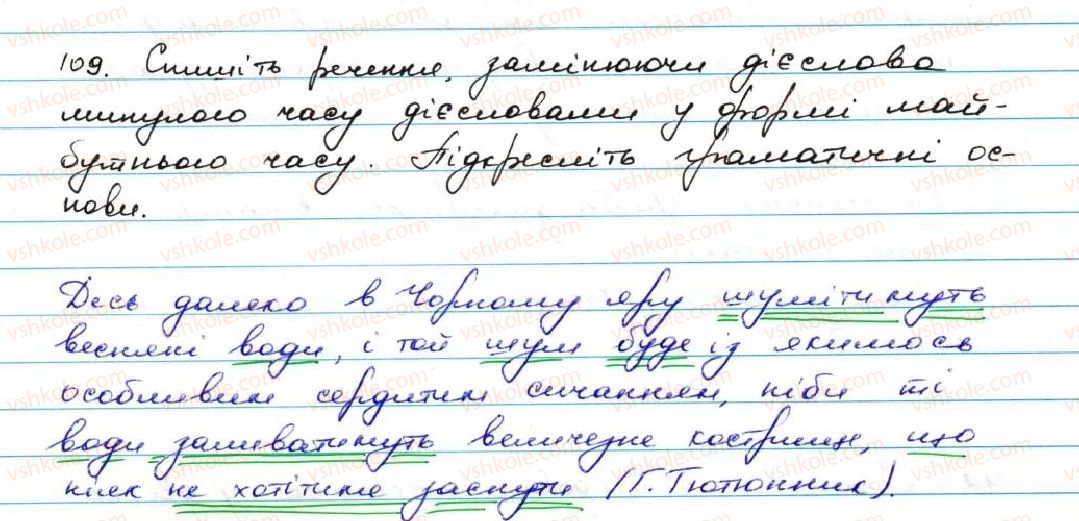 109. Спишіть речення, замінюючи дієслова
минулого часу дієсловами у формі май-
бутнього часу. Підкресліть граматичні ос-
нови.
Десь далеко в Чорному яру шумітимуть
весняні води, і той шум буде із якимось
особливим сердитим сичанням, ніби ті
води заливатимуть величезне кострище, що
ніяк не хотітиме заснути (Г. Тютюнник).